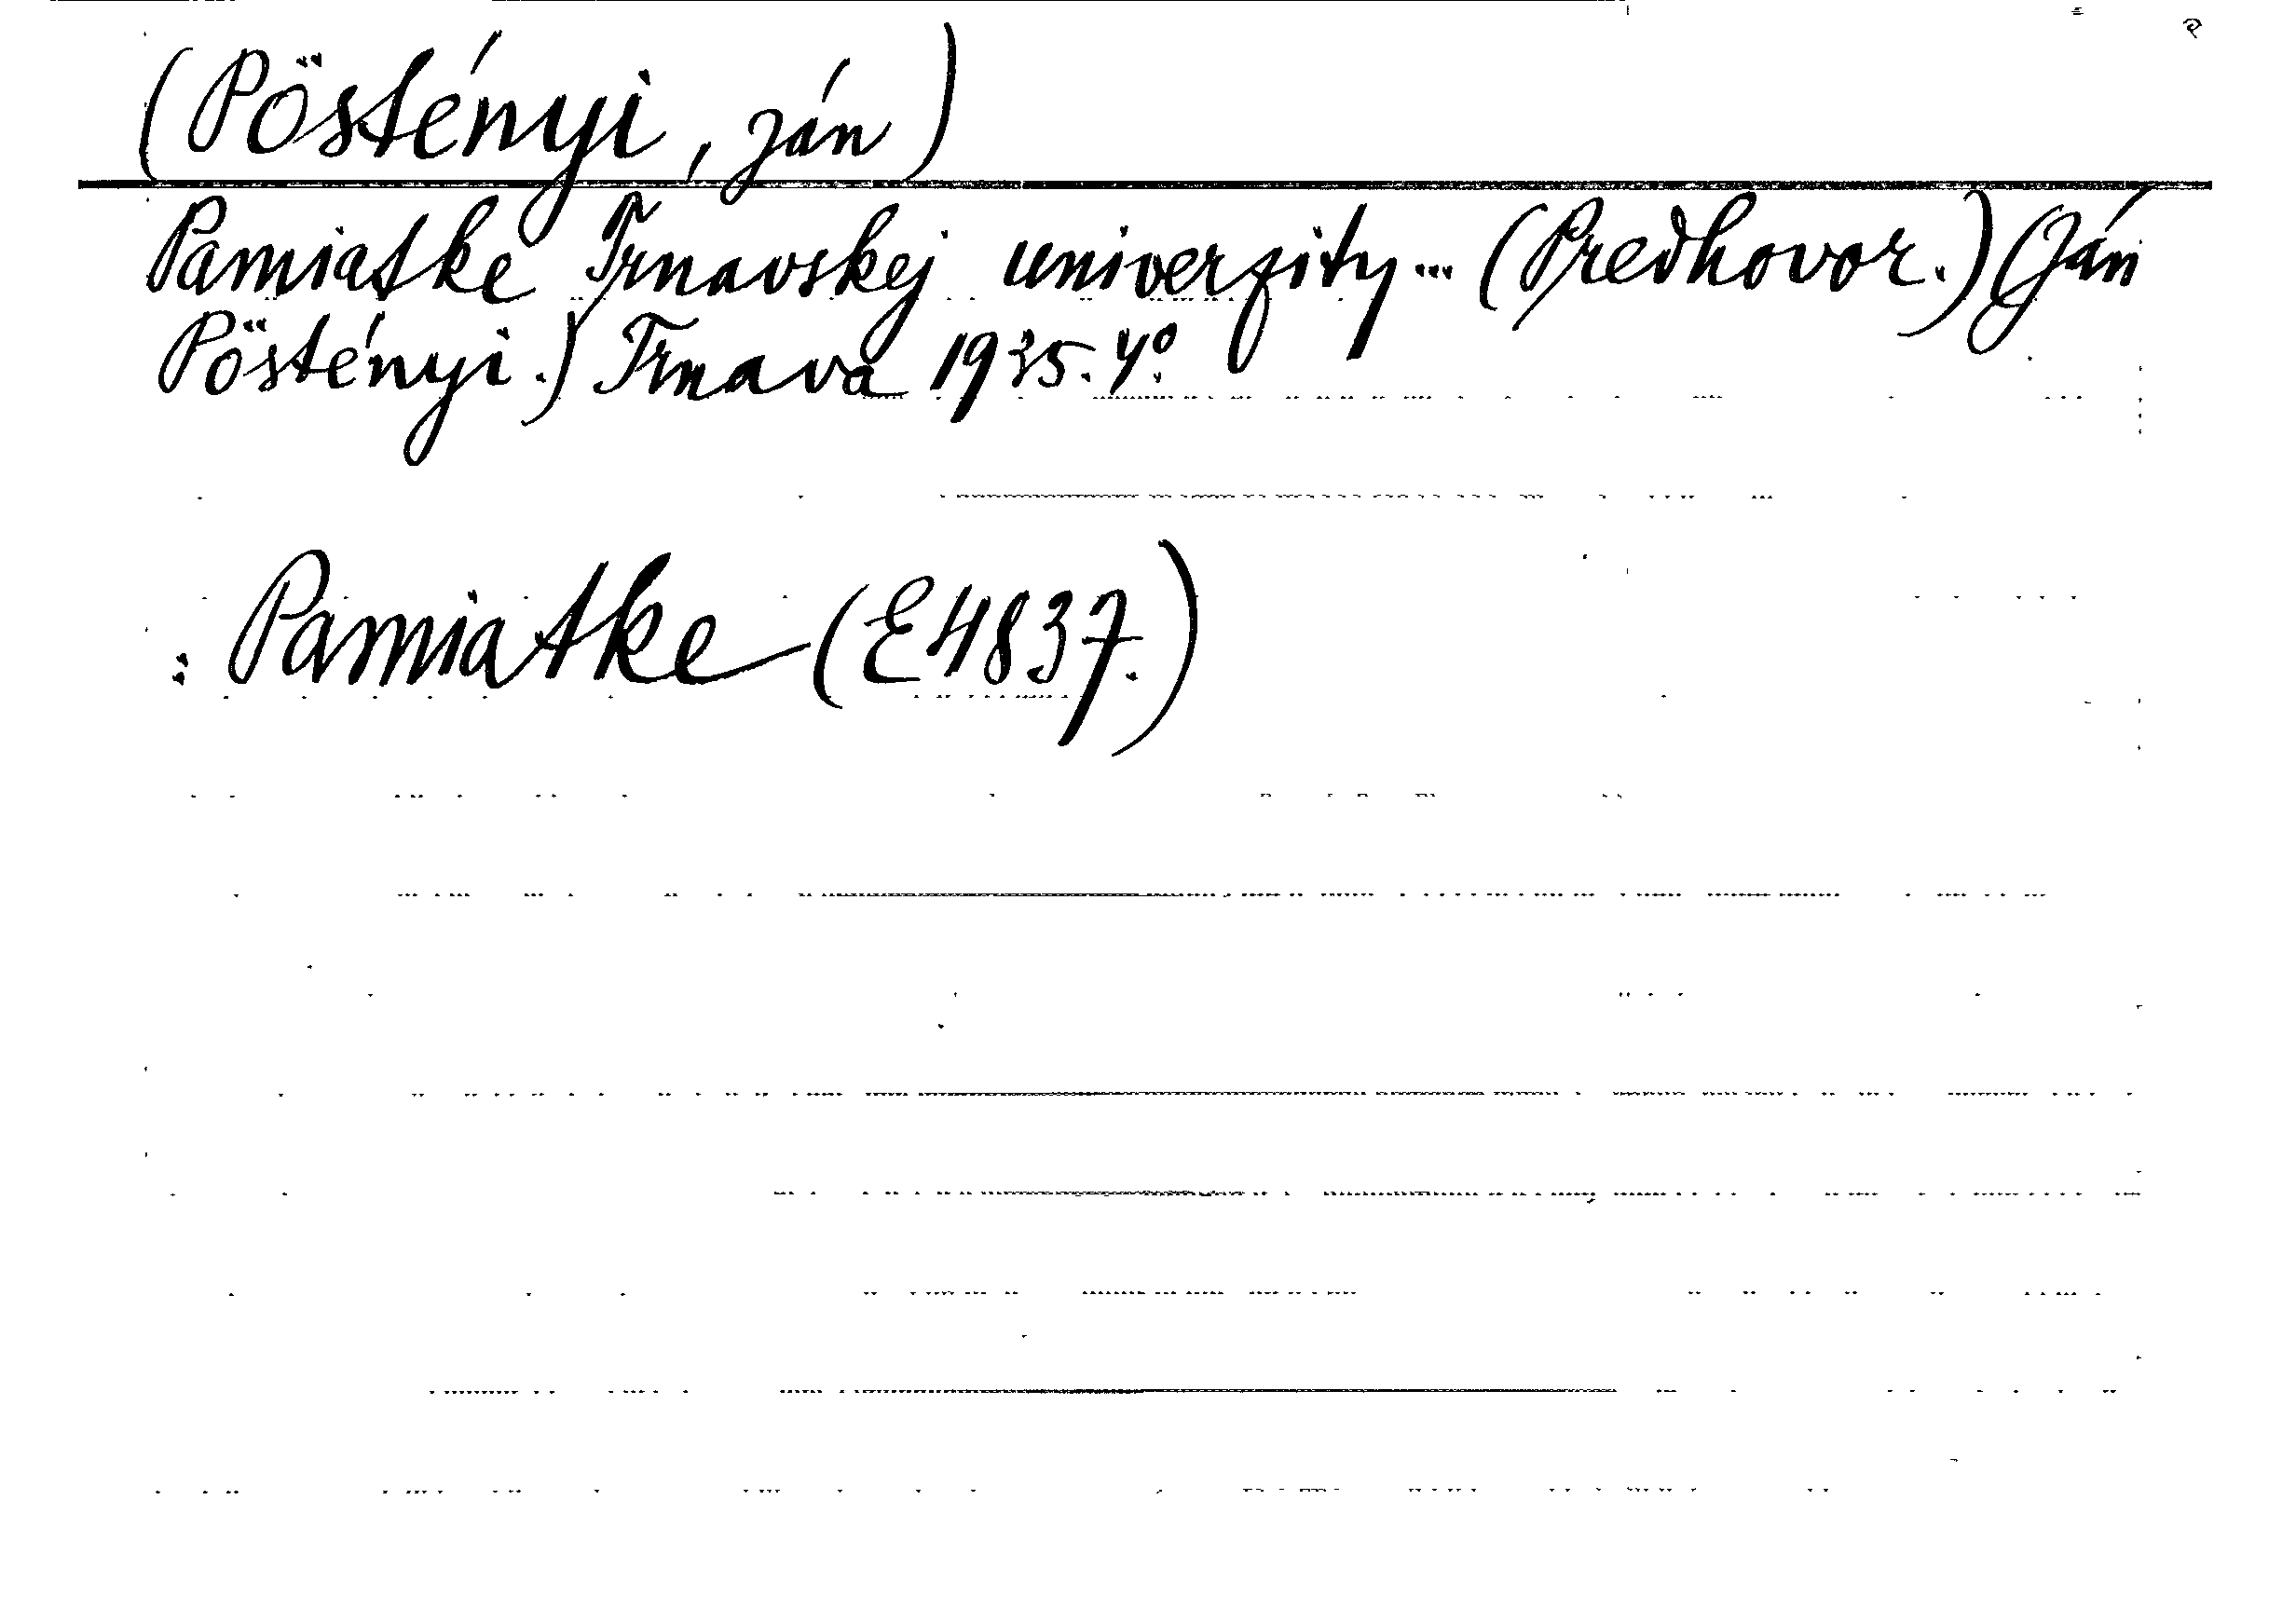 (Pöstényi, Ján)
Pamiatke Trnavskej univerzity... (Predhovor.) (Ján
Pöstényi.) Trnava 1935. 4º.
: Pamiatke (E4837.)